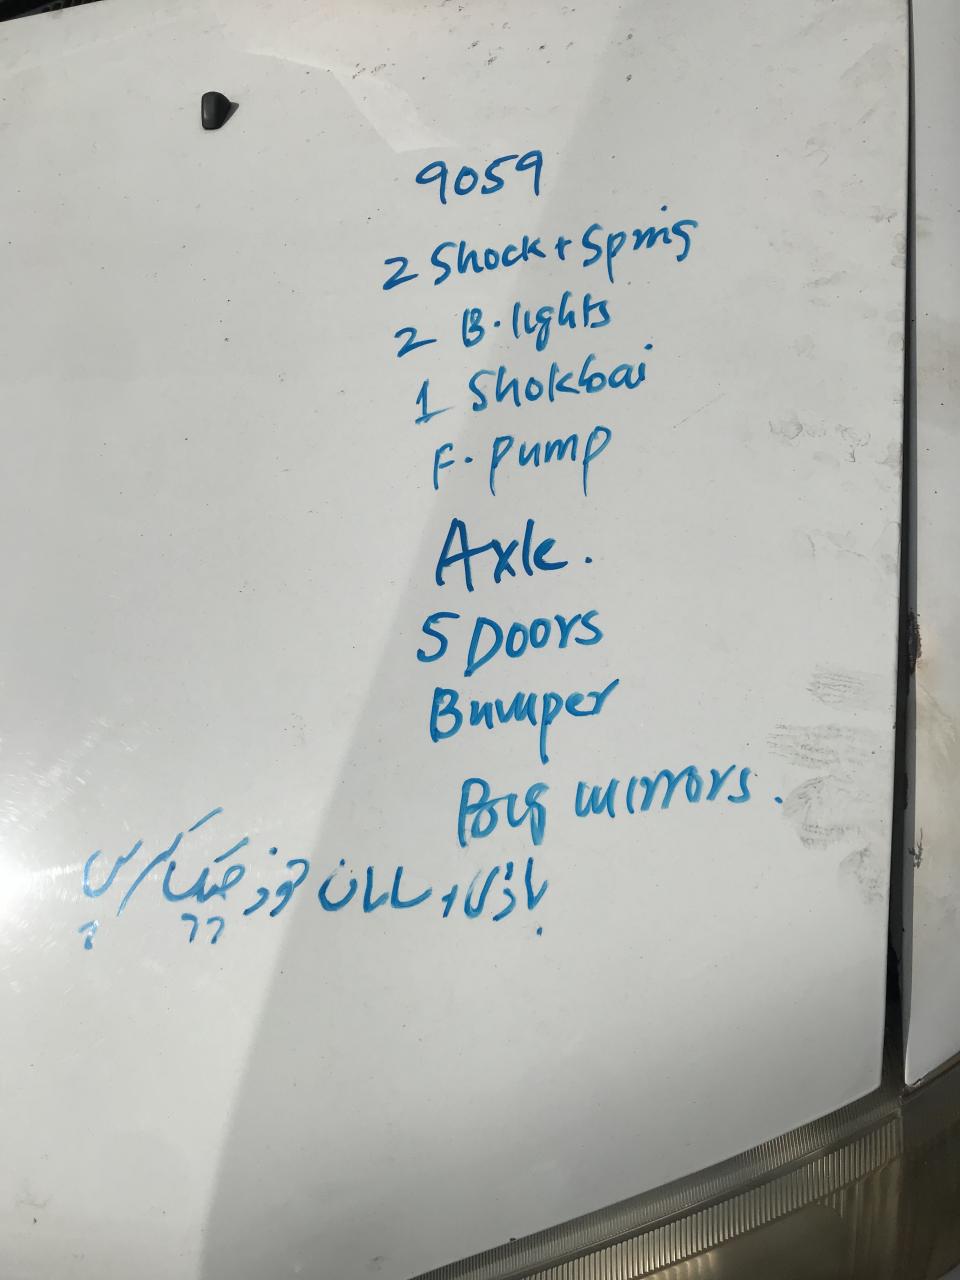 9059
2 Shock + Spring
2 B. lights
1 Shokbai
F. Pump
Axle.
5 Doors
Bumper
mirrors.
سامان خود چیک کریں